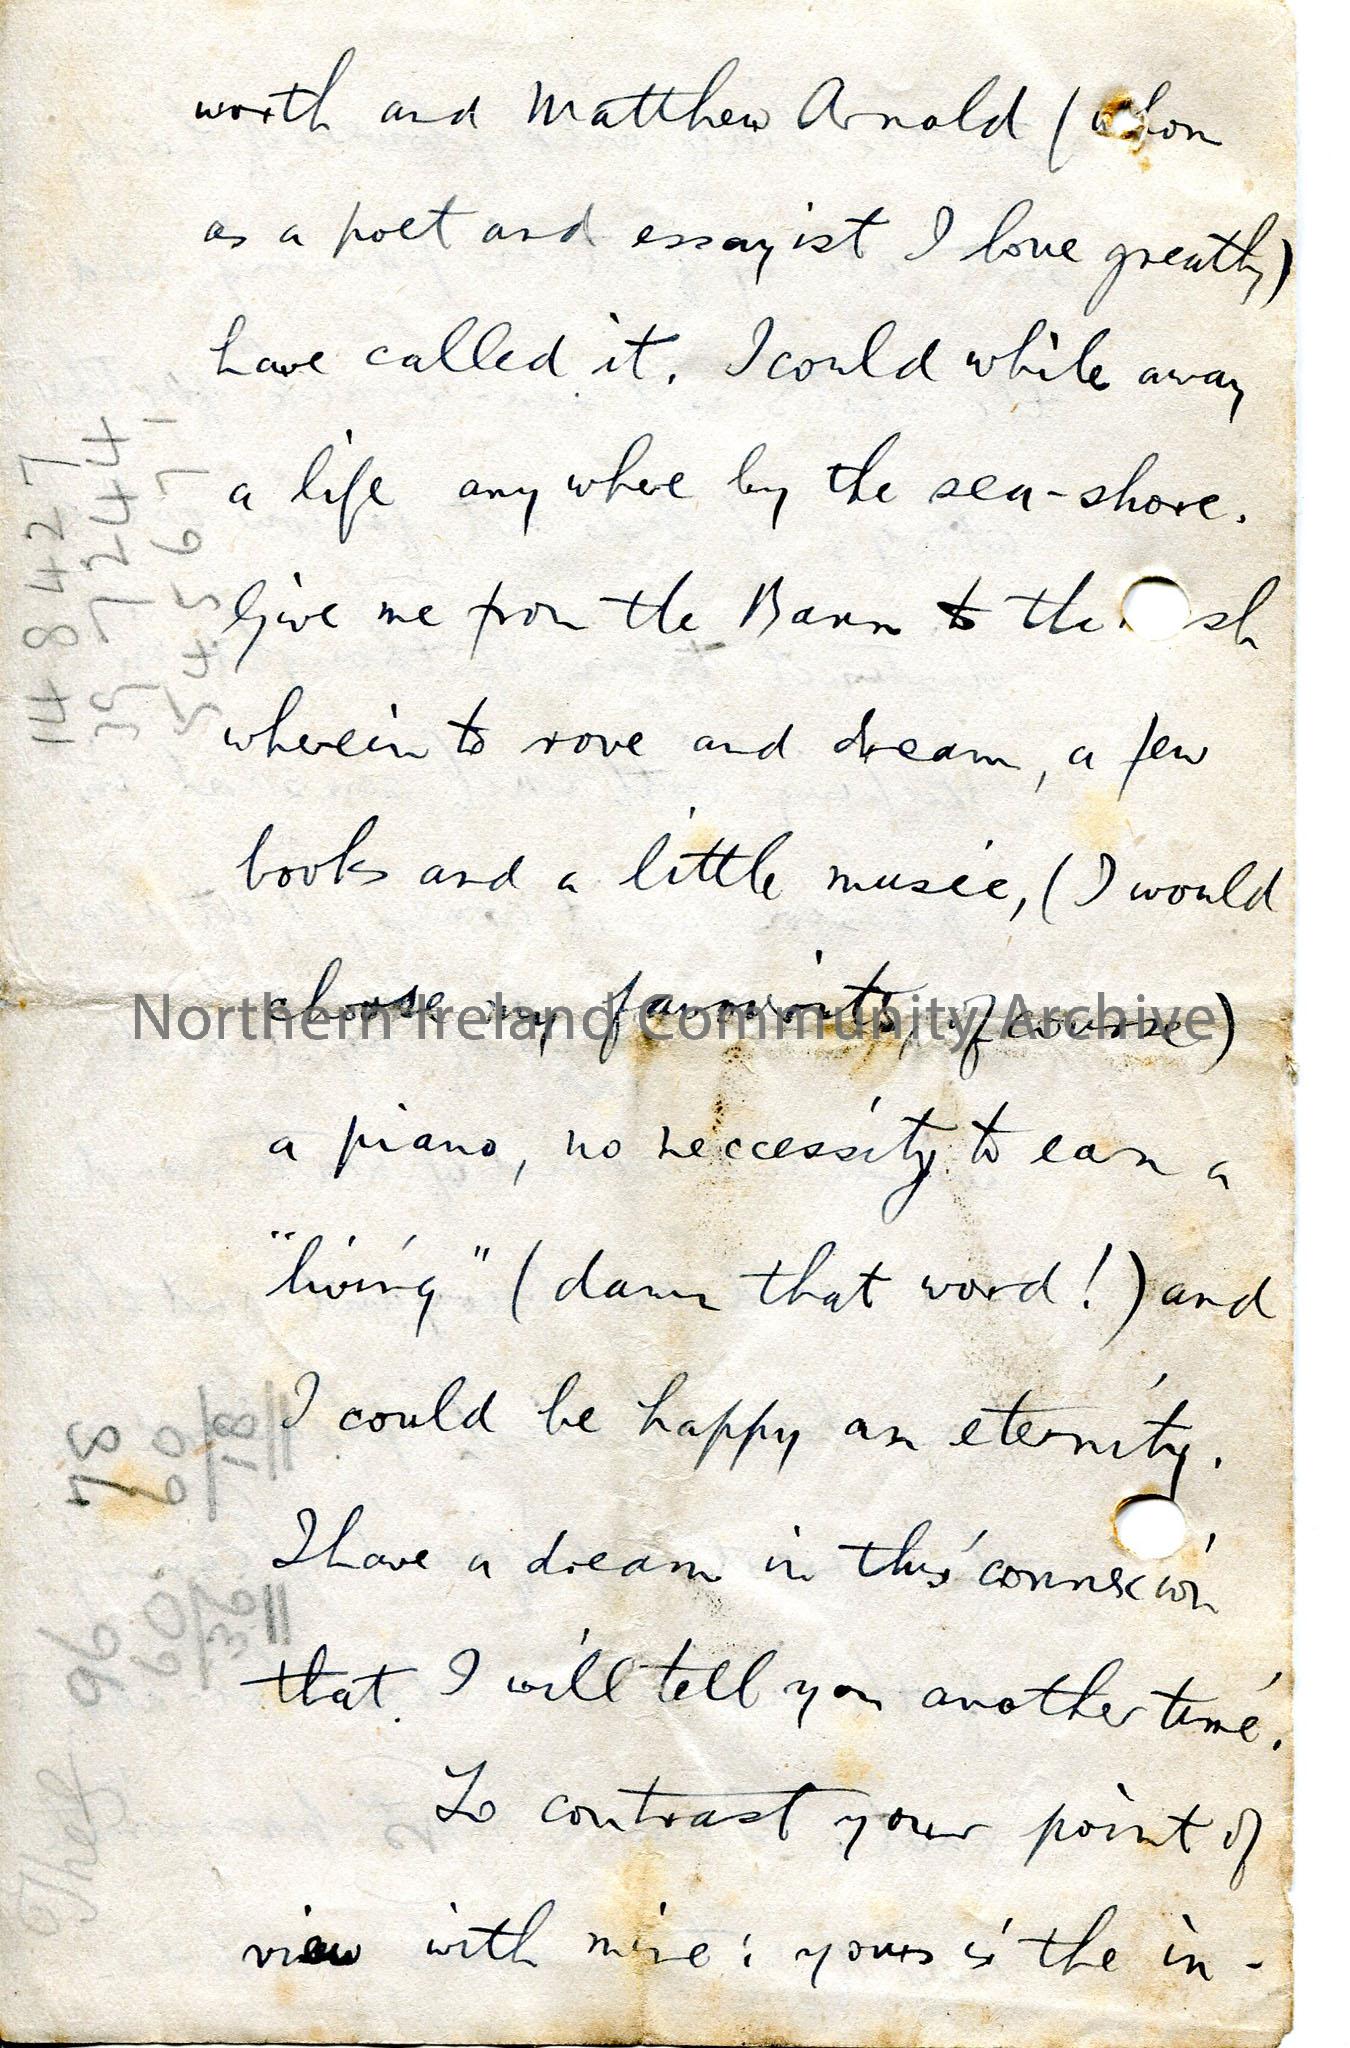 worth and Matthew Arnold (whom
as a poet and essayist I love greatly)
have called it. I could while away
a life anywhere by the sea-shore.
Give me from the Bann to the sh
wherein to rove and dream, a few
books and a little music, (I would
choose my favourites, of course)
Northern Ireland Community Archive
a piano, no neccessity to earn a
"living" (damn that word!) and
I could be happy an eternity.
I have a dream in this connexion
that I will tell you another time.
To contrast your point of
view with mine: yours is the in-
148427
397244
545671
78
60
18
96
60
36